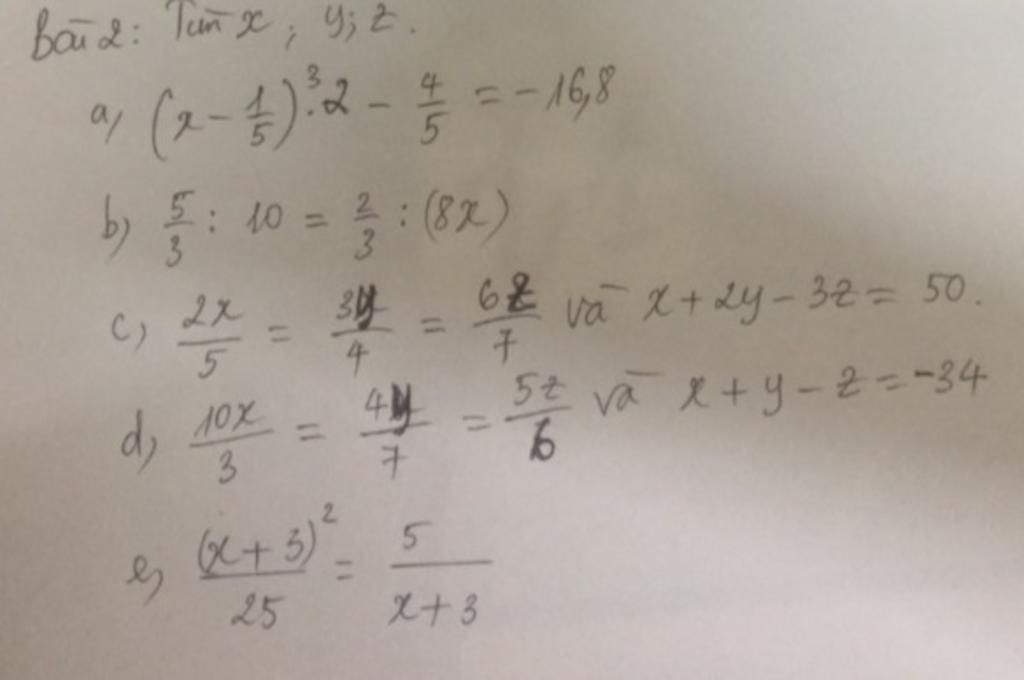 Bài 2: Tìm x; y; z.
a, (x - 1/5)³.2 - 4/5 = -16,8
b, 5/3 : 10 = 2/3 : (8x)
c, 2x/5 = 3y/4 = 6z/7 và x + 2y - 3z = 50.
d, 10x/3 = 4y/7 = 5z/6 và x + y - z = -34
e, (x + 3)²/25 = 5/x + 3